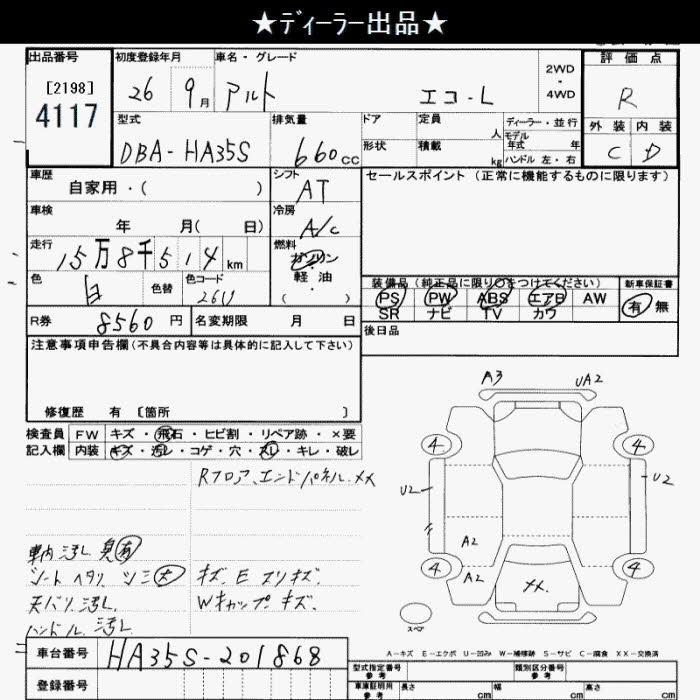 ★ディーラー出品★
出品番号
[2198]
4117
初度登録年月
26 9月
車名・グレード
アルト エコ-L
2WD
・
4WD
評価点
R
外装 内装
C D
型式
DBA-HA35S
排気量
660cc
ドア
形状
定員 人
積載 kg
ディーラー・並行
モデル年式 年
ハンドル 左・右
車歴
自家用・( )
シフト
AT
セールスポイント (正常に機能するものに限ります)
車検
年 月( 日)
冷房
A/C
走行
15万8千514km
燃料
ガソリン
・
軽油
・
( )
色
白
色替
色コード
26U
装備品 (純正品に限り○をつけてください)
PS PW ABS エアB AW
SR ナビ TV カワ
新車保証書
有・無
R券 8560円
名変期限 月 日
後日品
注意事項申告欄 (不具合内容等は具体的に記入して下さい)
修復歴 有 [箇所 ]
検査員
記入欄
FW キズ・飛石・ヒビ割・リペア跡・×要
内装 キズ・汚レ・コゲ・穴・スレ・キレ・破レ
Rフロア、エンドパネル XX
車内汚レ 臭有
シートヘタリ シミ大
天バリ汚レ
ハンドル汚レ
キズ E スリキズ
Wキャップキズ
A3 UA2
4 4
U2 U2
A2
4 4
A2
XX
スペア
A-キズ E-エクボ U-凹み W-補修跡 S-サビ C-腐食 XX-交換済
車台番号 HA35S-201868
登録番号
型式指定番号
参考
類別区分番号
参考
車庫証明用
参考
長さ cm 幅 cm 高さ cm